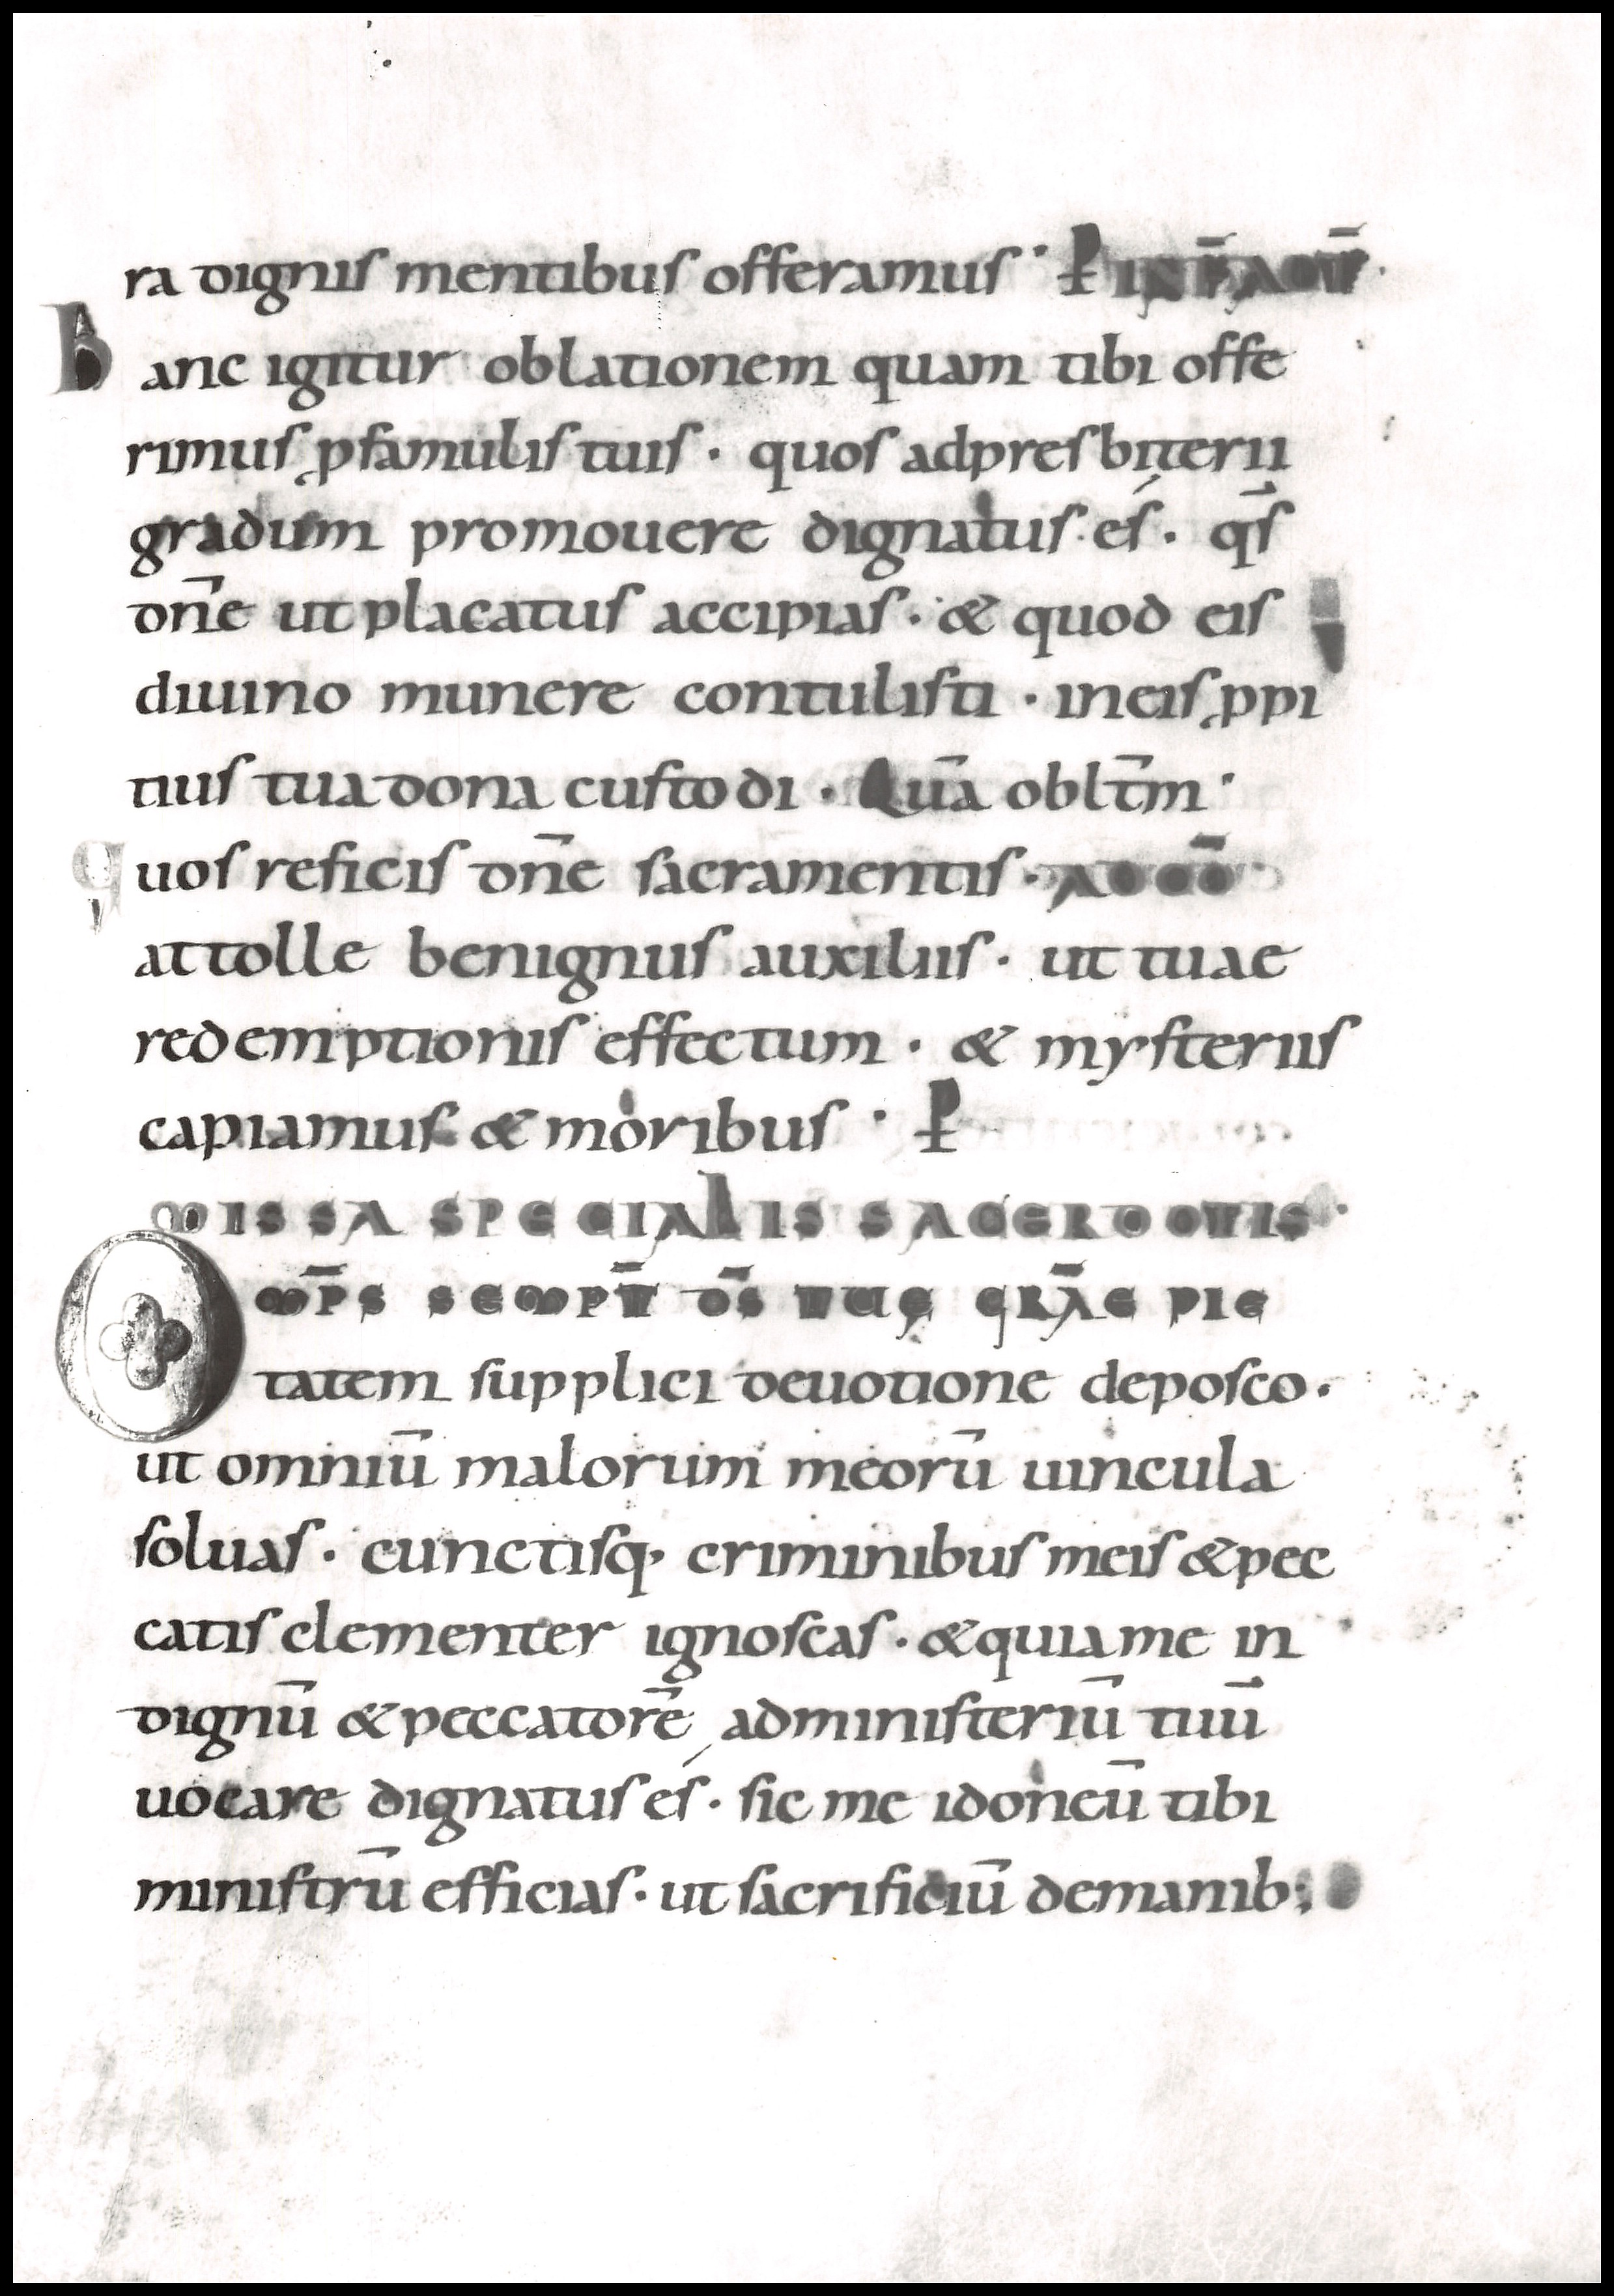 ra dignis mentibus offeramus · P INFR̄ ACT̄ ·
hanc igitur oblationem quam tibi offe
rimus ꝓ famulis tuis · quos ad presbiterii
gradum promouere dignatus és · qs̄
dn̄e ut placatus accipias · & quod eis
diuino munere contulisti · in eis ꝓpi
tius tua dona custodi · Quā oblt̄m ·
quos reficis dn̄e sacramentis · AD CŌ
attolle benignus auxiliis · ut tuae
redemptionis effectum · & mysteriis
capiamus & moribus · P
MISSA SPECIALIS SACERDOTIS ·
OMP̄S SEMPT̄ DS̄ TUĘ GRĀE PIE
tatem supplici deuotione deposco ·
ut omniū malorum meorū uincula
soluas · cunctisq· criminibus meis & pec
catis clementer ignoscas · & quia me in
dignū & peccatorē ad ministeriū tuū
uocare dignatus és · sic me idoneū tibi
ministrū efficias · ut sacrificiū de manib;